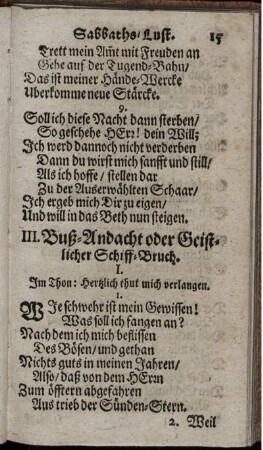 Sabbaths-Lust. 15
Trett mein Am̃t mit Freuden an
Gehe auf der Tugend-Bahn/
Das ist meiner Hände-Wercke
Uberkomme neue Stärcke.
9.
Soll ich diese Nacht dann sterben/
So geschehe HErr! dein Will;
Ich werd dannoch nicht verderben
Dann du wirst mich sanfft und still/
Als ich hoffe/ stellen dar
Zu der Auserwählten Schaar/
Ich ergeb mich Dir zu eigen/
Und will in das Beth nun steigen.
III. Buß-Andacht oder Geist-
licher Schiff-Bruch.
I.
Im Thon: Hertzlich thut mich verlangen.
1.
WJe schwehr ist mein Gewissen!
Was soll ich fangen an?
Nach dem ich mich beflissen
Des Bösen/ und gethan
Nichts guts in meinen Jahren/
Also/ daß von dem HErrn
Zum öfftern abgefahren
Aus trieb der Sünden-Stern.
2. Weil